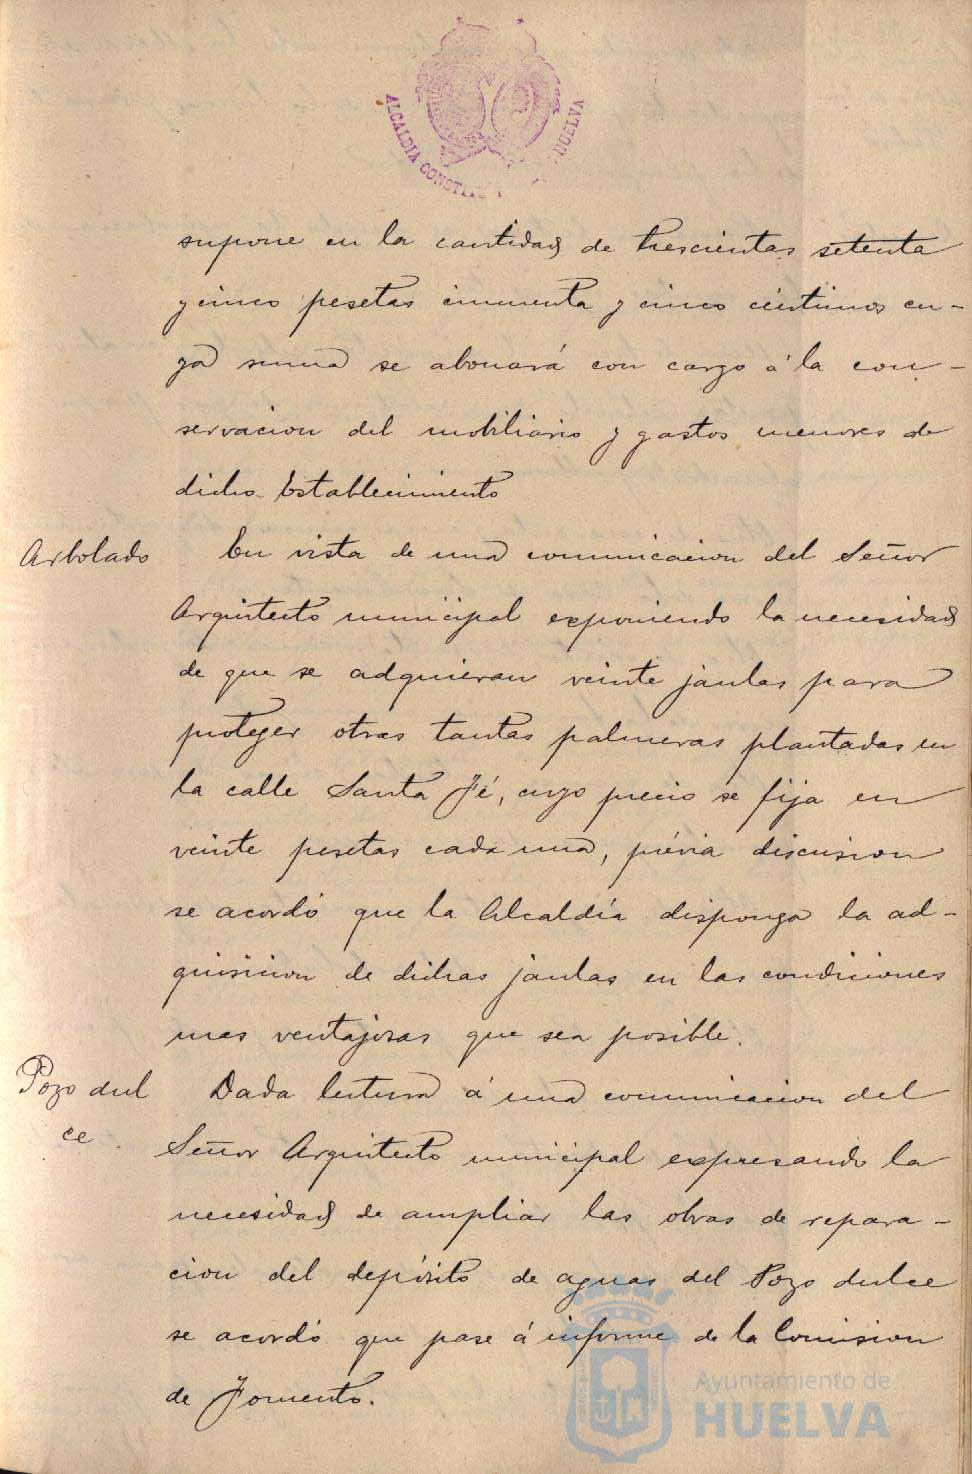 ALCALDIA CONSTIT HUELVA
supone en la cantidad de trescientas setenta
y cinco pesetas cincuenta y cinco céntimos cu-
ya suma se abonará con cargo á la con-
servacion del mobiliario y gastos menores de
dicho Establecimiento
Arbolado
En vista de una comunicacion del Señor
Arquitecto municipal exponiendo la necesidad
de que se adquieran veinte jaulas para
proteger otras tantas palmeras plantadas en
la calle Santa Fé, cuyo precio se fija en
veinte pesetas cada una, prévia discusion
se acordó que la Alcaldía disponga la ad-
quisicion de dichas jaulas en las condiciones
mas ventajosas que sea posible.
Pozo dul
ce
Dada lectura á una comunicacion del
Señor Arquitecto municipal expresando la
necesidad de ampliar las obras de repara-
cion del depósito de aguas del Pozo dulce
se acordó que pase á informe de la Comision
de Fomento.
Ayuntamiento de
HUELVA